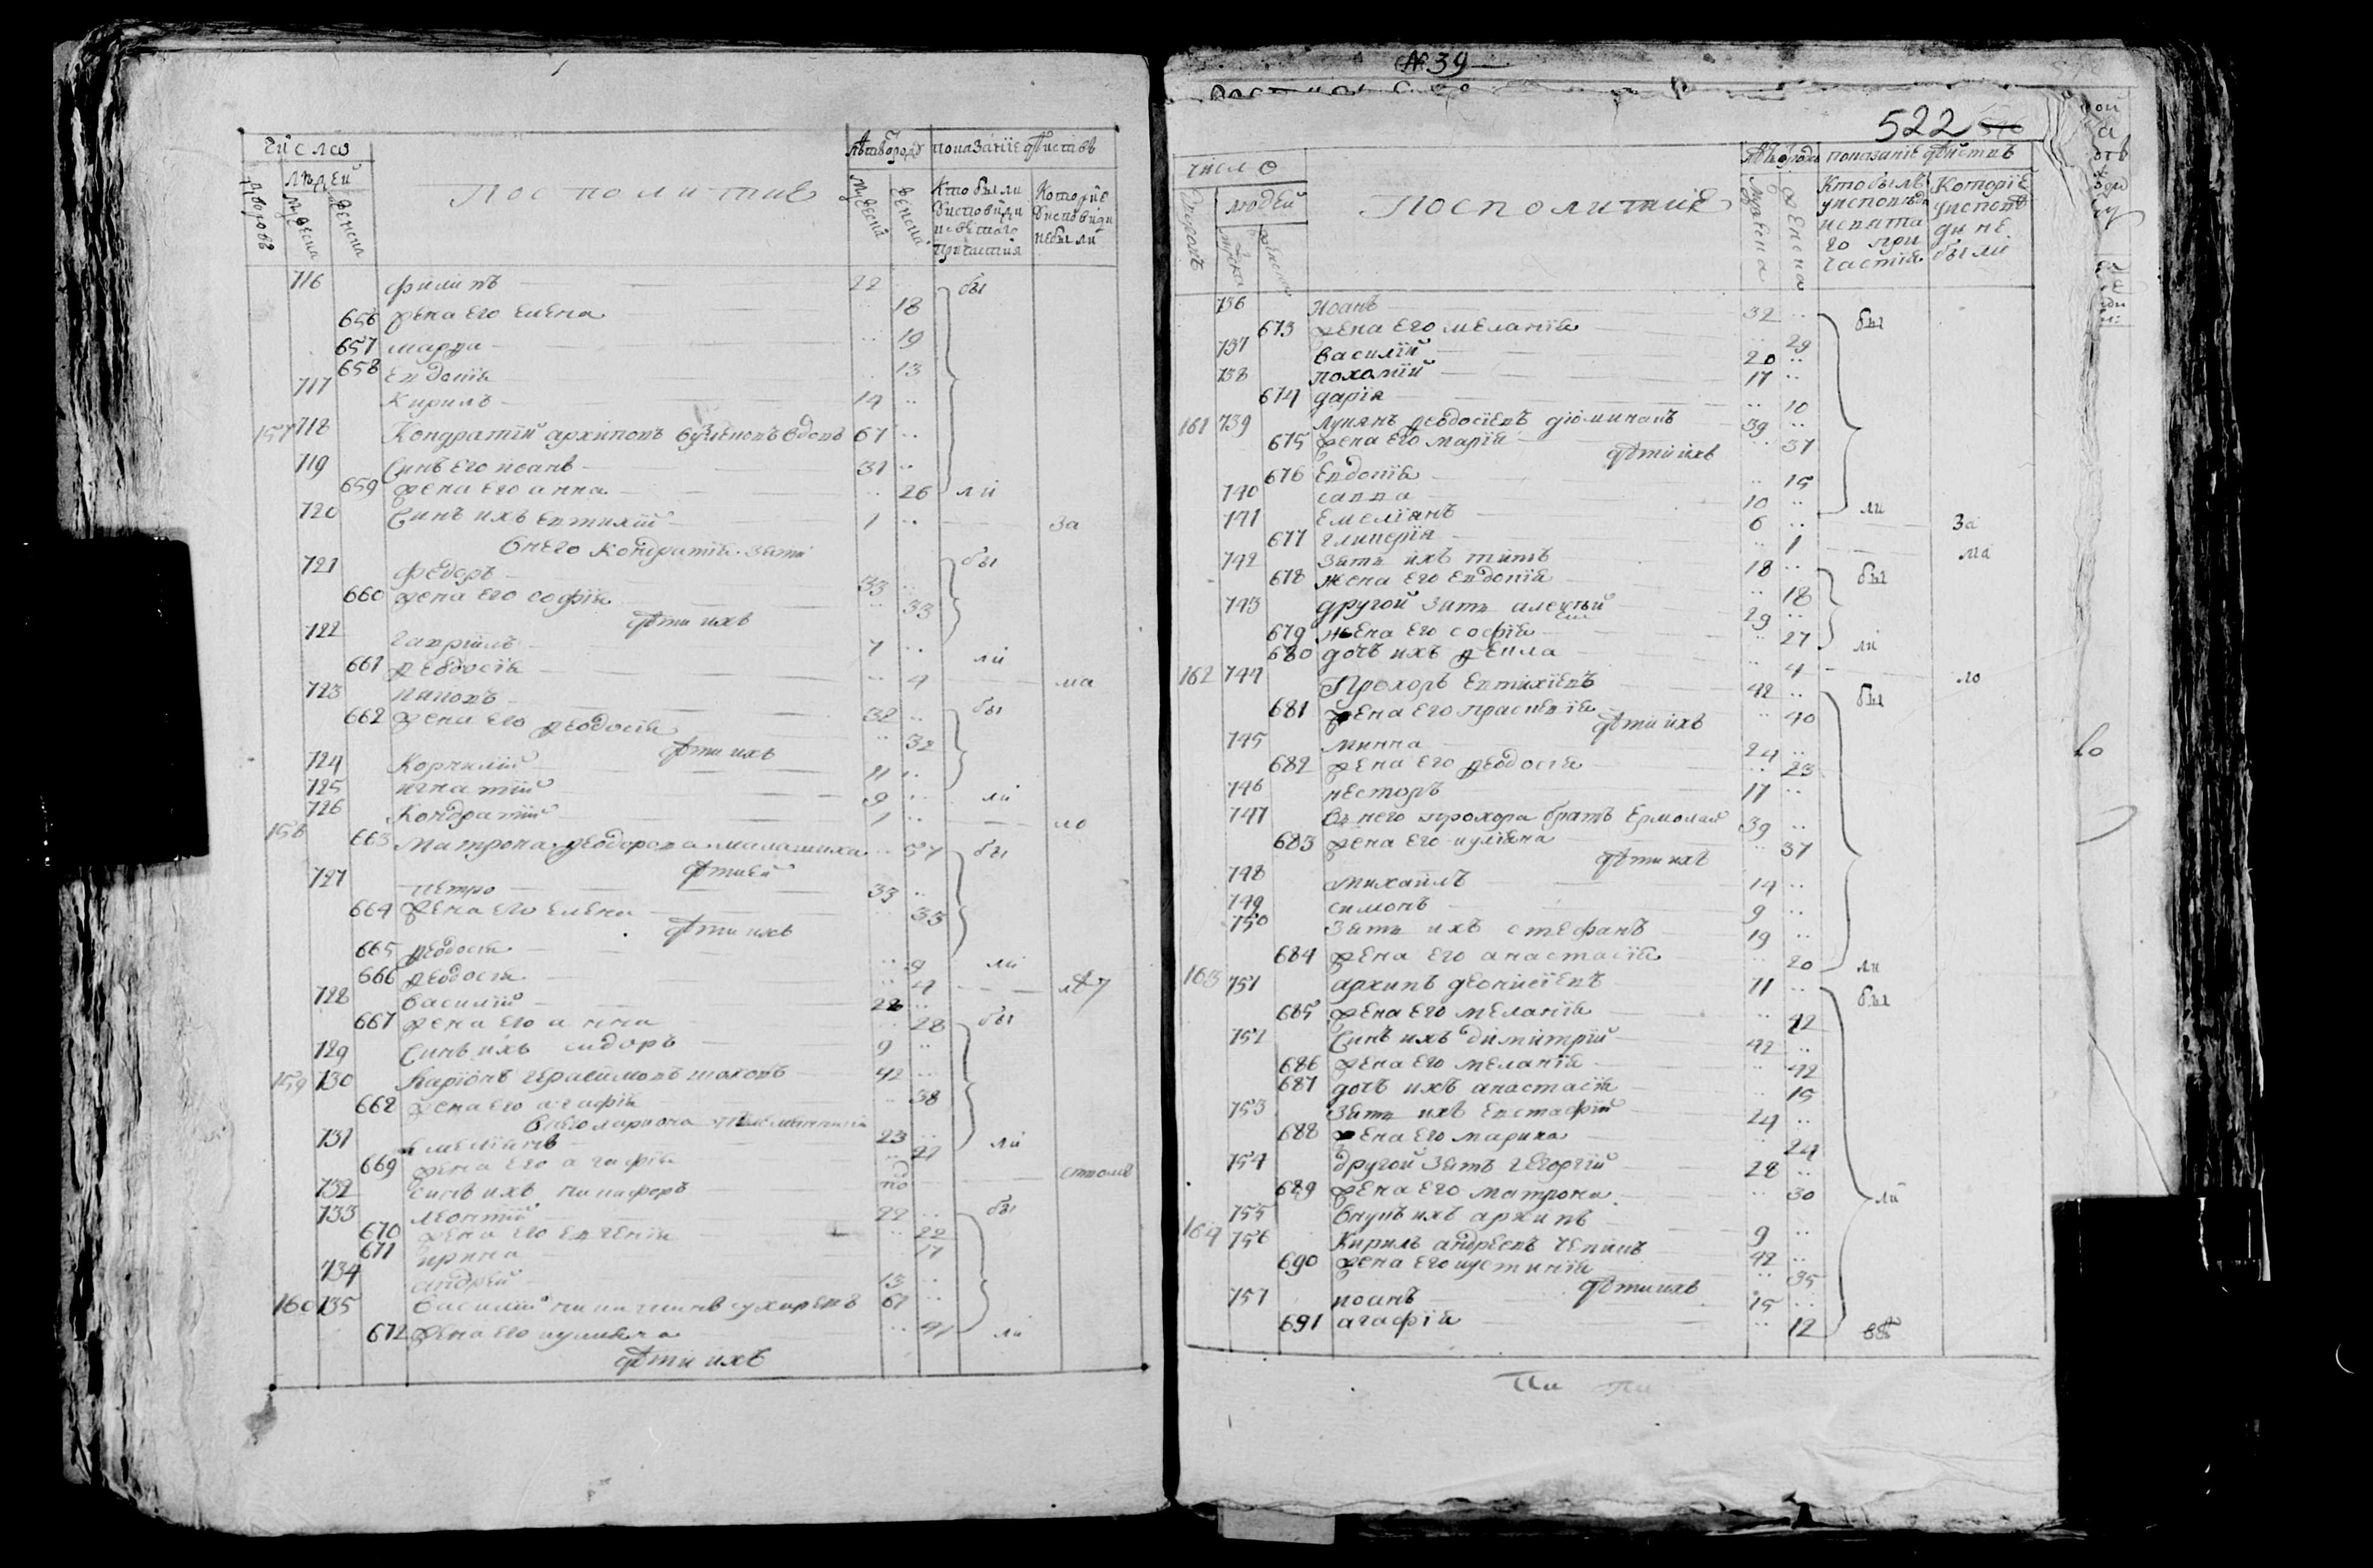 Число
людей
дворовъ
мужеска
женска
Посполитие
лѣта отъ роду
мужеска
женска
показание дѣйствъ
Кто были
у исповѣди
и святого
причастия
Которие
у исповѣди
не были
716 Филипъ 22 бы
656 жена его Елена 18
657 Марфа 19
658 Евдокія 13
717 Кирилъ 14
157 718 Кондратій Архиповъ вдовъ 67
719 Синъ его Иоанъ 31
659 жена его Анна 26 ли
720 Синъ ихъ Евтихій 1 за
в него Кондратія зяті
721 Федоръ 33 бы
660 жена его Софія 33
дѣти ихъ
722 Гавріилъ 7
661 Феодосія 4 ли ма
723 Иаковъ 32 бы
662 жена его Феодосія 32
дѣти ихъ
724 Корнилій 11
725 Игнатій 9 ли
726 Кондратій 1 ло
158 663 Матрона Феодорова 57 бы
дѣти ей
727 Петро 33
664 жена его Елена 35
дѣти ихъ
665 Феодосія 9 ли
666 Феодосія 4 лѣт
728 Василій 28
667 жена его Анна 28 бы
729 Синъ ихъ Сидоръ 9
159 730 Ларіонъ Герасимовъ 42
668 жена его Агафія 38
в него Лариона племянники
731 Емеліянъ 23 ли
669 жена его Агафія 21
732 синъ ихъ Никифоръ
733 Леонтій 22 бы
670 жена его Евгенія 22
671 Ирина 17
734 Андрей 13
160 735 Василій 67
672 жена его Иулияна 41 ли
дѣти ихъ
№ 39
522
число
людей
Посполитие
лѣтъ отъ роду
мужеска
женска
показаніе дѣйствъ
Кто былъ
у исповѣди
и свята
го при
частия
Которіе
у исповѣ
ди не
были
736 Иоанъ 32 бы
673 жена его Меланія 29
737 Василій 20
738 Пахомій 17
674 Дарія 10
161 739 Лукянъ Феодосіевъ 39
675 жена его Марія 37
дѣти ихъ
676 Евдокія 15
740 Савва 10 ли
741 Емеліянъ 6 за
677 Гликерія 1 ма
742 Зять ихъ Титъ 18 бы
678 жена его Евдокія 18
743 другой зять Алексій 29
679 жена его Софія 27 ли
680 дочь ихъ Фекла 4 ло
162 744 Прохоръ Евтихіевъ 42 бы
681 жена его Прасковія 40
дѣти ихъ
745 Минна 24
682 жена его Феодосія 23
746 Несторъ 17
747 в него Прохора братъ Ермолай 39
683 жена его Иуліяна 37
дѣти ихъ
748 Михаилъ 14
749 Симонъ 9
750 Зять ихъ Стефанъ 19
684 жена его Анастасія 20 ли
163 751 Архипъ Деонисіевъ 71 бы
685 жена его Меланія
752 Синъ ихъ Димитрій 42
686 жена его Меланія 42
687 дочь ихъ Анастасія 15
753 Зять ихъ Евстафій 24
688 жена его Марина 24
754 другой зять Георгій 28
689 жена его Матрона 30 ли
755 внукъ ихъ Архипъ 9
164 756 Кирилъ Андреевъ 42
690 жена его Иустинія 35
дѣти ихъ
757 Иоанъ 15
691 Агафія 12